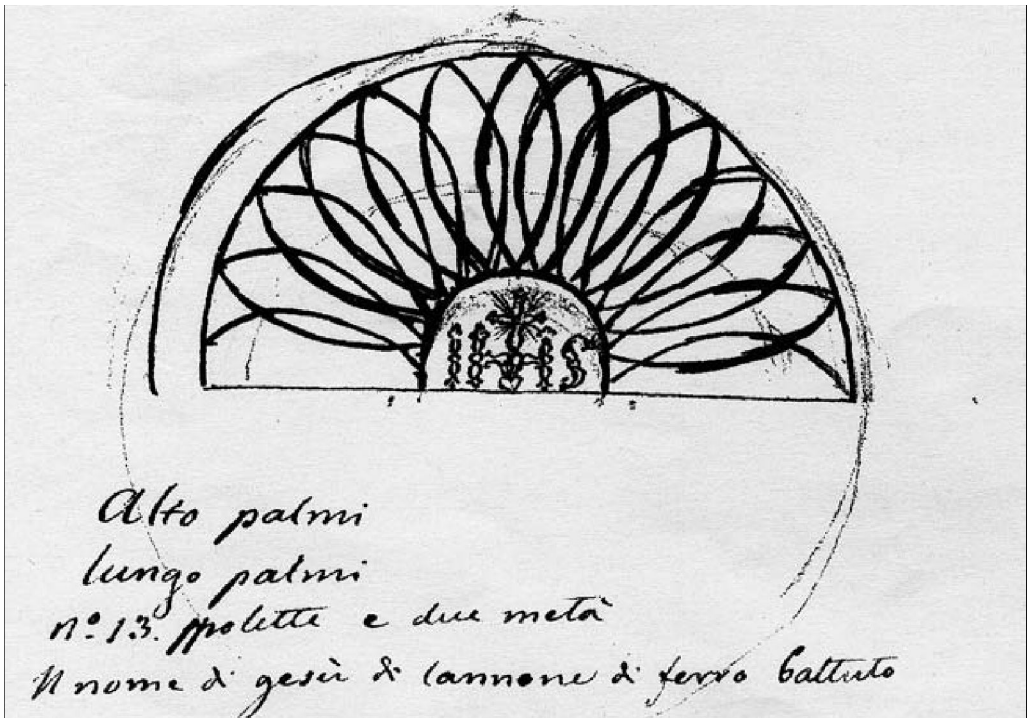 IHS
Alto palmi
lungo palmi
n.º 13. ppolette e due metà
Il nome di gesù di lannone di ferro battuto